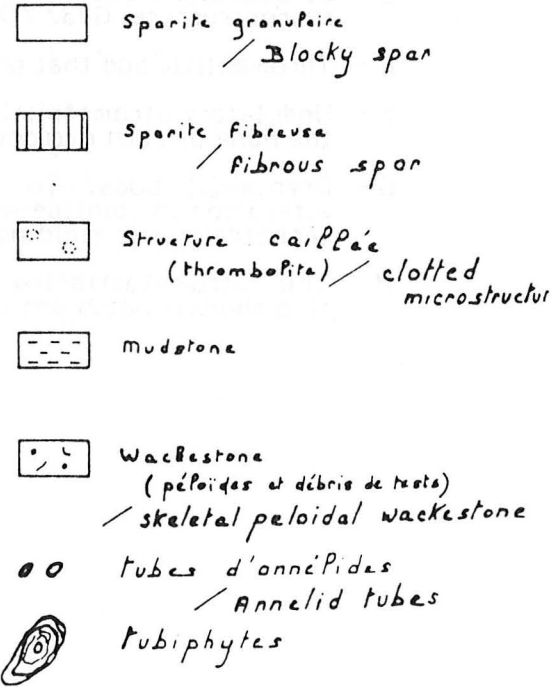 Sparite granulaire
/ Blocky spar
Sparite fibreuse
/ fibrous spar
Structure caillée
(thrombolite) / clotted
microstructur
Mudstone
Wackestone
(péloïdes et débris de tests)
/ skeletal peloidal wackestone
tubes d'annélides
/ Annelid tubes
tubiphytes